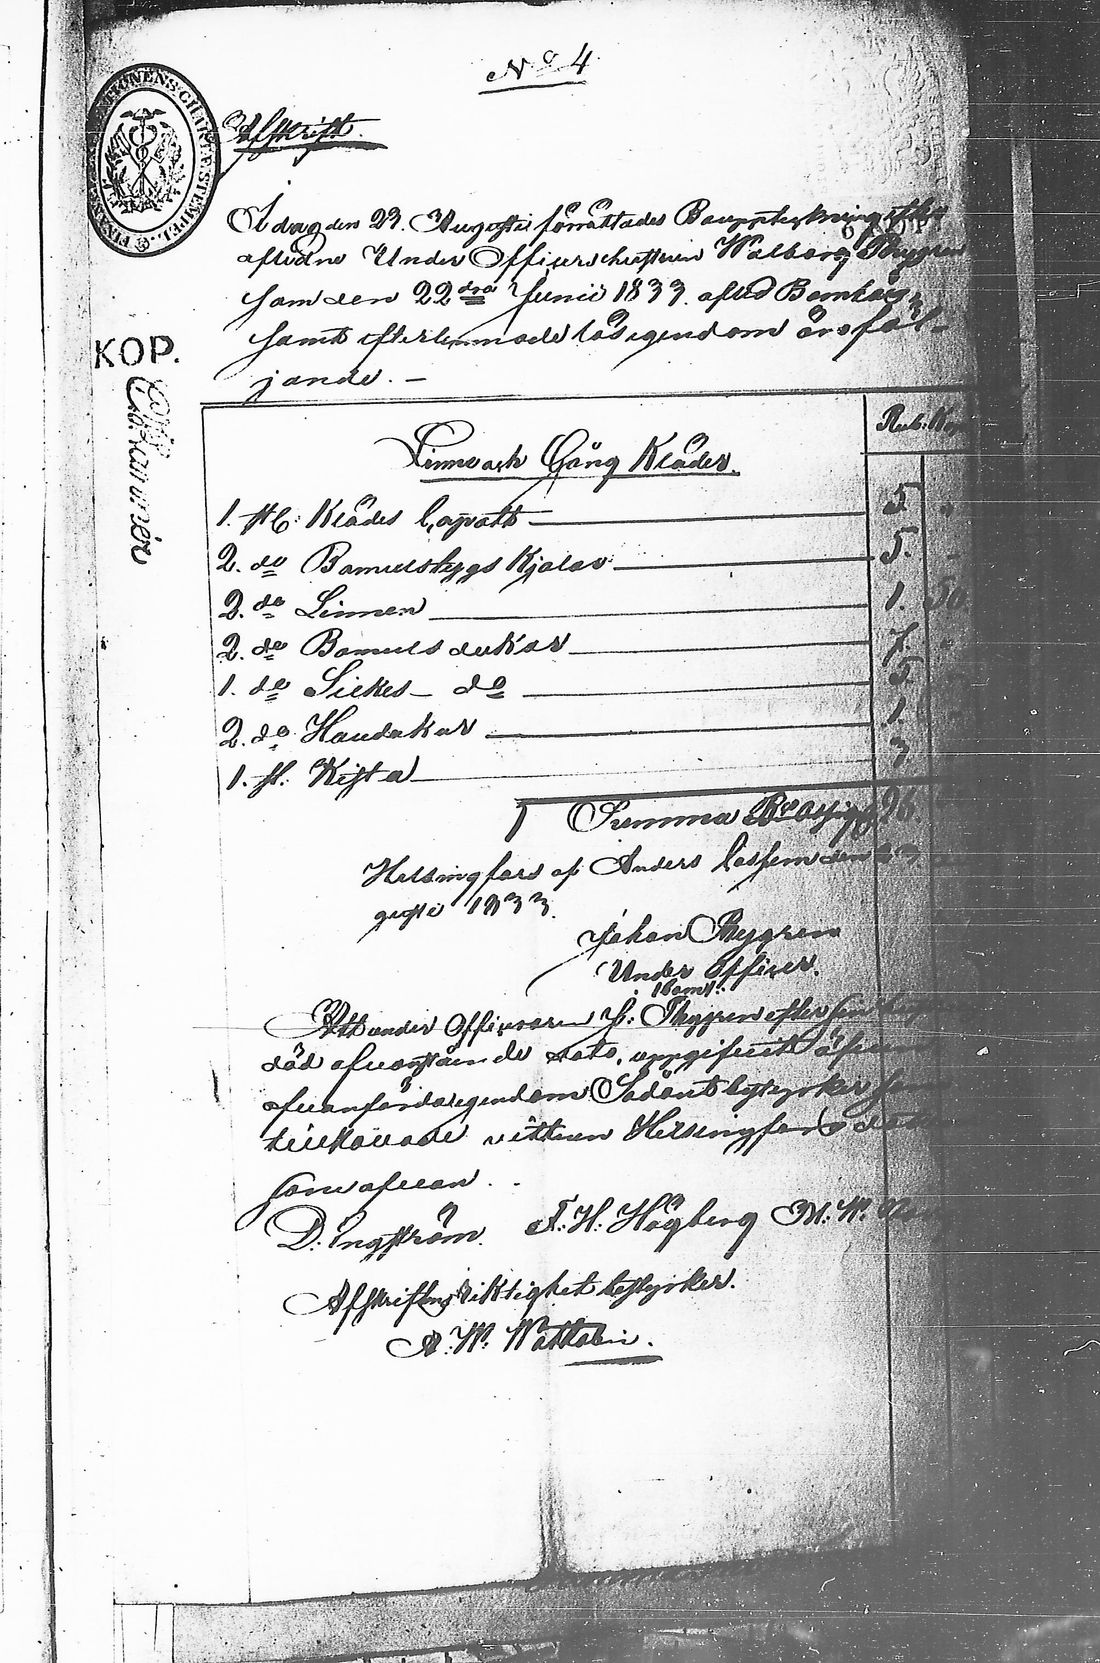 No 4
Afskrift.
KOP.
I dag den 23. Augusti förrättades Bouppteckning efter
aflidne Under Officers hustrun Walborg Thygren
som den 22dra Junii 1833. afled
samt efterlemnade lösegendom äro föl-
jande. —
Rub. Kop
Linne och Gång Kläder.
1. st: Klädes Capott 5
2. do Bomulstygs Kjolar 5.
2. do Linnen 1. 50
2. do Bomuls dukar 7.
1. do Silkes do 5.
2. do Handukar 1.
1. st. Kista
Summa 26.
Helsingfors af Anders den
gusti 1833.
Johan Thygren
Under Officer.
Att under Officeren J: Thygren efter sin
död ofvanstående dato, uppgifvit
ofvanförda egendom Sådant betyrker som
tillkallade vittnen Helsingfors
som ofvan.
D. Engström. F: H: Högberg M: W:
Afskriftens riktighet bestyrker.
A: W: Wattolin.